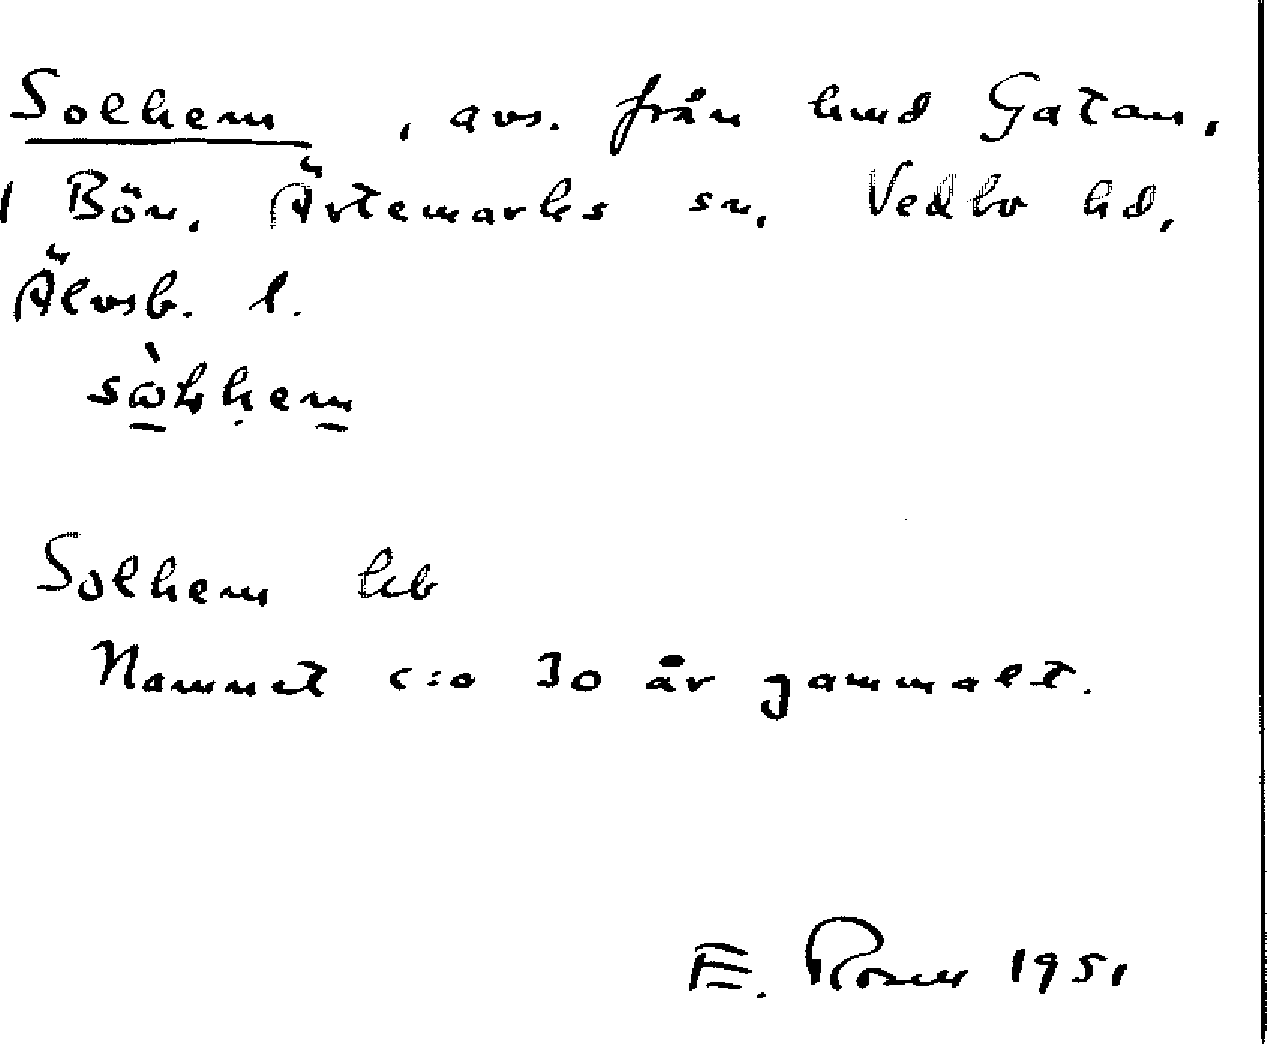 Solhem, avs. från hmd Gatan,
1 Bön, Ärtemarks sn, Vedbo hd,
Älvsb. l.
Solhem
Namnet c:a 30 år gammalt.
E. Rosen 1951